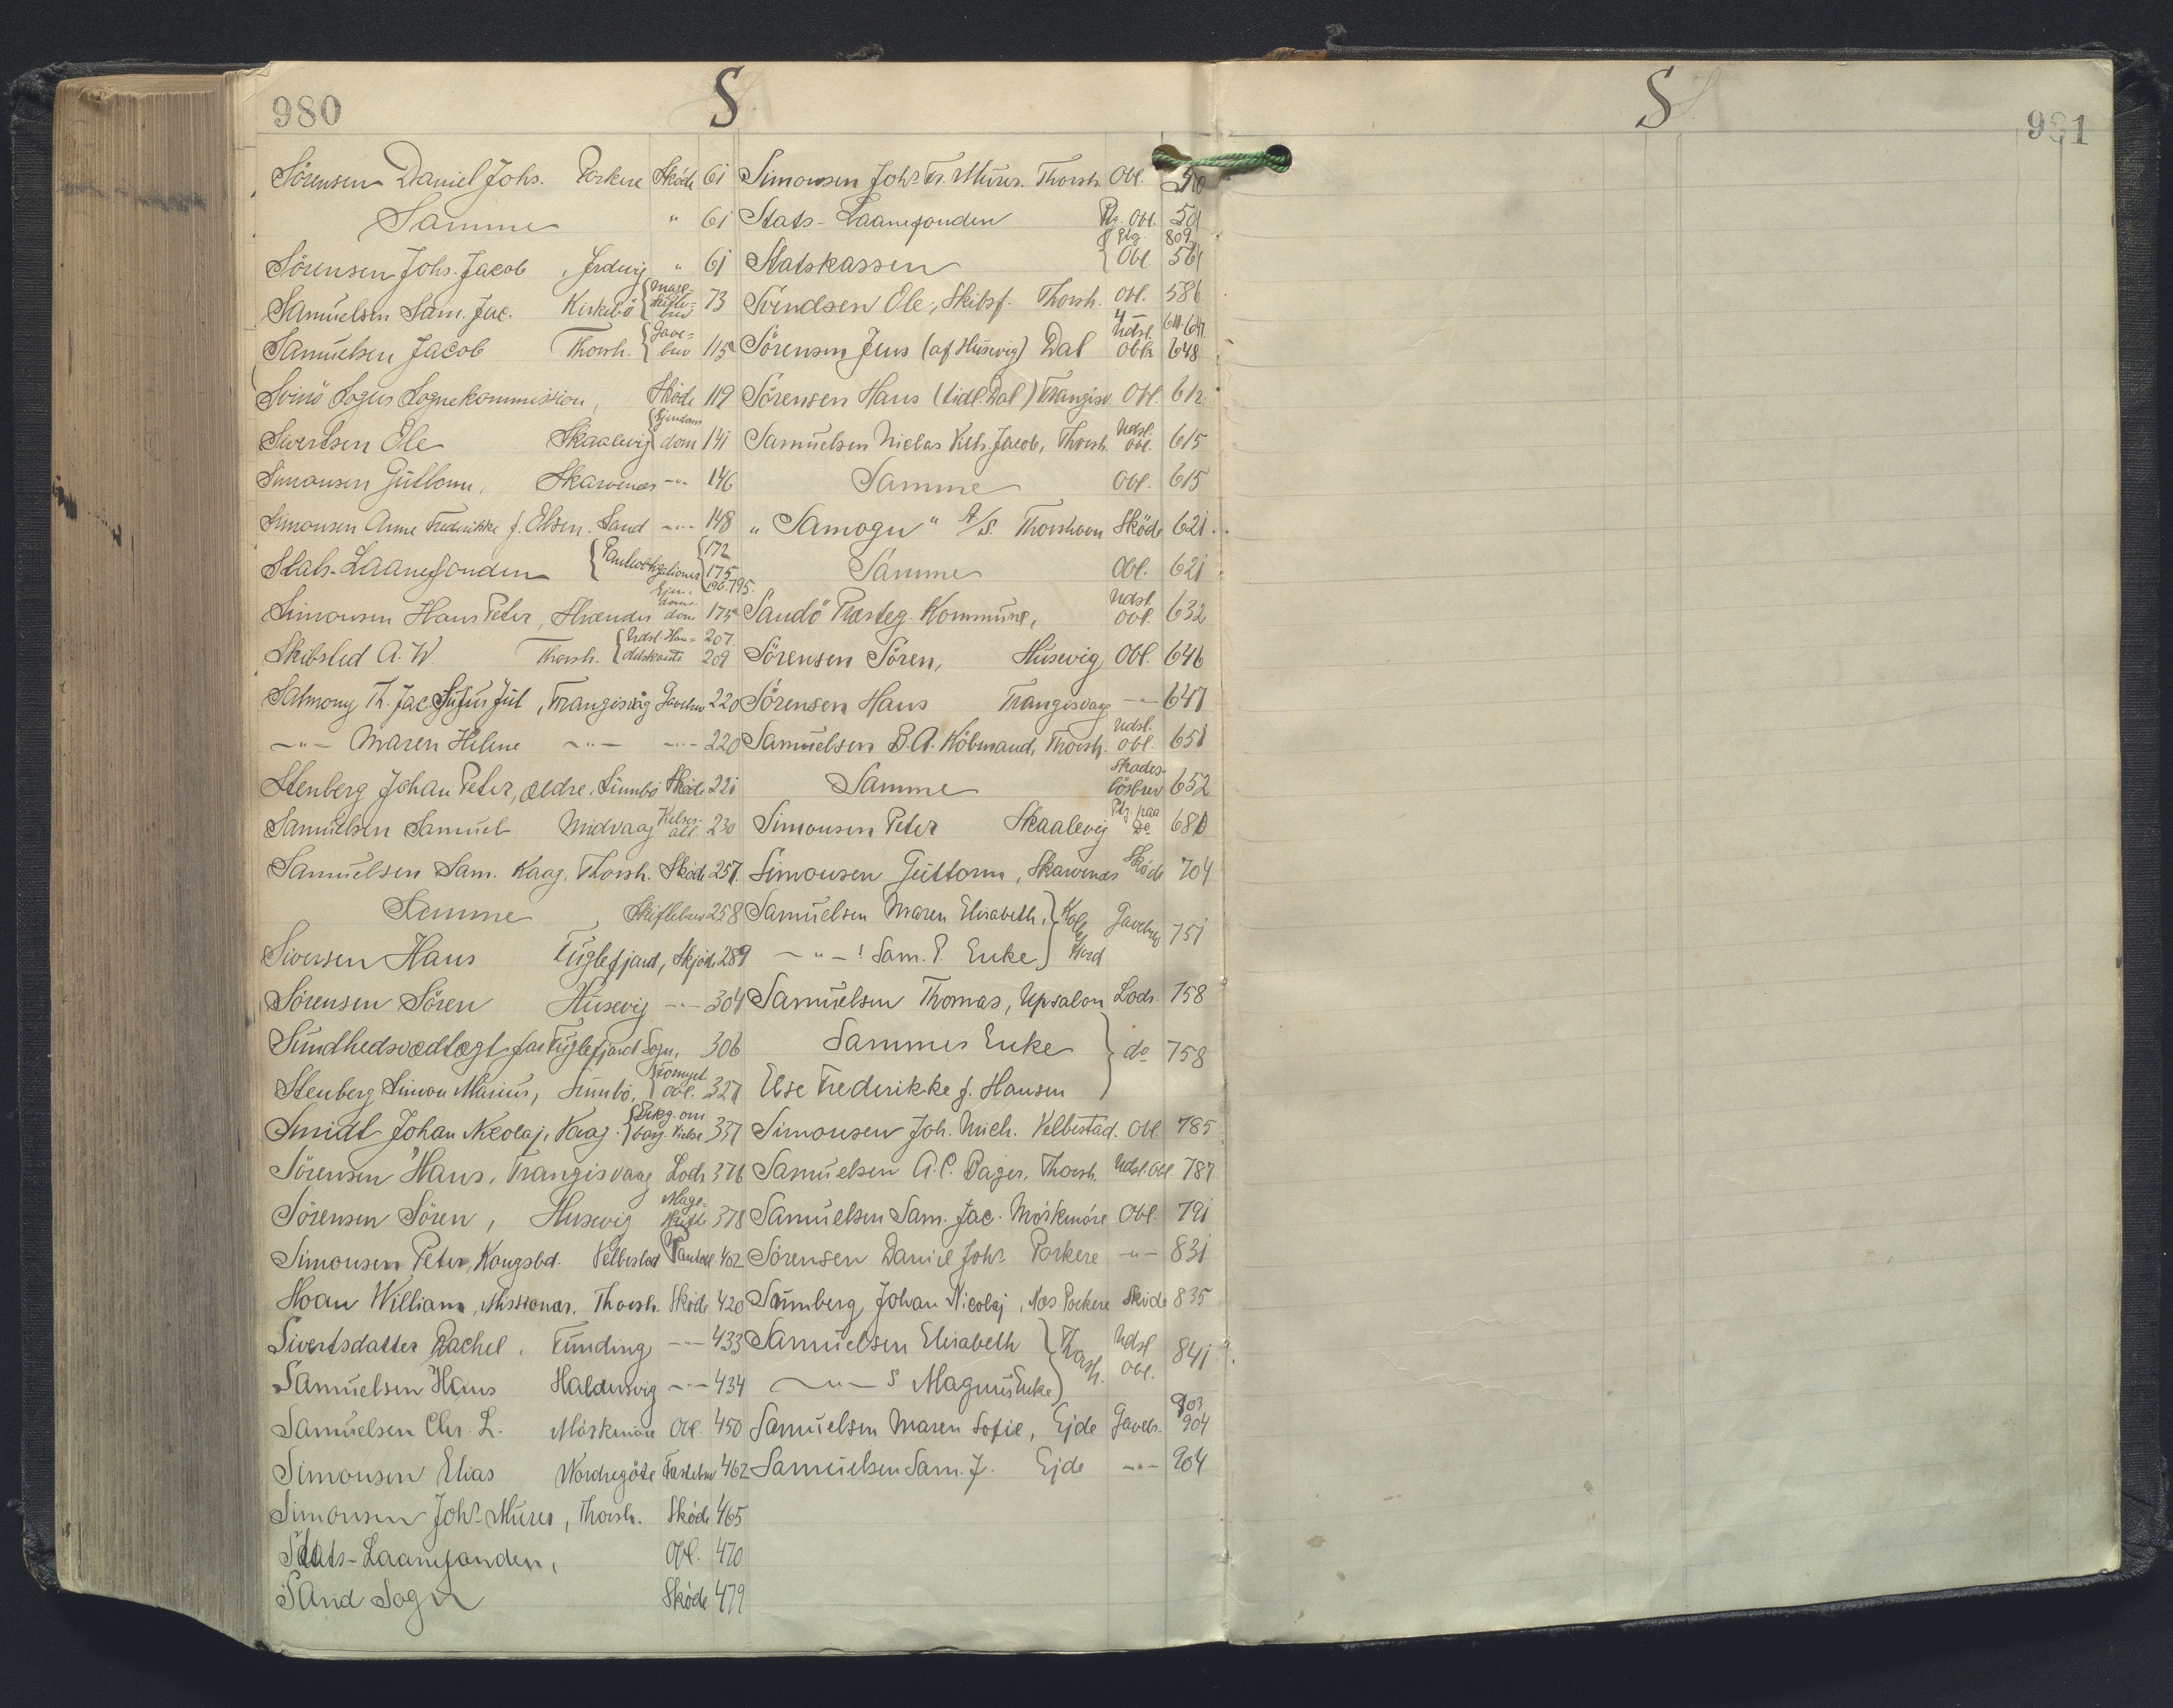 980
S
Sörensen Daniel Johs. Porkere Sköde 61
Samme " 61
Sörensen Johs. Jacob, " 61
Samuelsen Sam. Jac. Kirkebö 73
Samuelsen Jacob Thorsh. Gave-brev 115
Svinö Sogns Sognekommission, Sköde 119
Sivertsen Ole Skaalevig Ejendomsdom 141
Simonsen Guttorm, Skarvenæs -"- 146
Simonsen Anne Fredrikke f. Olsen. Sand -"- 148
Stats-Laanefonden Panteobligationer 172 175 196. 795.
Simonsen Hans Peter, Ejen-doms-dom 175
Skibsted A. W. Thorsh. Udsl. Han-delskonti 207 209
Salmony Th. Jac. Jul, Trangisvåg Gavebrev 220
-"- Maren Helene -"- -"- 220
Stenberg Johan Peter, ældre, Sumbö Sköde 221
Samuelsen Samuel Midvaag 230
Samuelsen Sam. Kaag, Thorsh. Sköde 257.
Samme, Skiftebrev 258
Siversen Hans Fuglefjord, Skjöde 289
Sörensen Sören Husevig -"- 304
Sundhedsvedtægt for Fuglefjord Sogn, 306
Stenberg Simon Marius, Sumbö, Obl. 327
Smidt Johan Nicolaj, Vaag. 337
Sörensen Hans, Trangisvaag Lods 376
Sörensen Sören, Husevig Mage-skifte 378
Simonsen Peter, Kongsbd. Velbestad Panteobl. 402
Sloan William, Missionær. Thorsh. Sköde 420
Sivertsdatter Rachel, Funding -"- 433
Samuelsen Hans Haldersvig -"- 434
Samuelsen Chr. L. Mörkmöre Obl. 450
Simonsen Elias Nordregöte Fæstebrev 462
Simonsen Johs. Murer, Thorsh. Sköde 465
Stats-Laanefonden, Obl. 470
Sand Sogn Sköde 479
Simonsen Johs. Fr. Murer. Thorsh. Obl.
Stats-Laanefonden Obl. 501
Statskassen Obl. 809 561
Svendsen Ole, Skibsf. Thorsh. Obl. 586
Sörensen Jens (af Husevig) Dal 4 Udsl. Oblr. 648
Sörensen Hans (tidl. Dal) Trangisv. Obl. 612
Samuelsen Niclas Vilh. Jacob, Thorsh. Udsl. obl. 615
Samme Obl. 615
"Samogn" A/S. Thorshavn Sköde 621
Samme Obl. 621
Sandö Præsteg. Kommune, Udsl. obl. 632
Sörensen Sören, Husevig Obl. 646
Sörensen Hans Trangisvaag -"- 647
Samuelsen B. A. Köbmand, Thorsh. Udsl. obl. 651
Samme Skades-lösbrev 652
Simonsen Peter Skaalevig Ptg. paa Do 681
Simonsen Guttorm, Skarvenæs Sköde 704
Samuelsen Maren Elisabeth, Gavebrev 751
-"- Sam. P. Enke
Samuelsen Thomas, Upsalon Lods. 758
Sammes Enke do 758
Else Frederikke f. Hansen
Simonsen Joh. Mich. Velbestad. Obl. 785
Samuelsen A. C. Bager, Thorsh. Udsl. Obl. 787
Samuelsen Sam. Jac. Mörkmöre Obl. 791
Sörensen Daniel Johs. Porkere -"- 831
Sumberg Johan Nicolaj, Næs. Porkere Sköde 835
Samuelsen Elisabeth Thorsh. Udsl. Obl. 841
-"- s Magnus Enke
Samuelsen Maren Sofie, Ejde Gavebr. 903 904
Samuelsen Sam. J. Ejde -"- 904
S
981